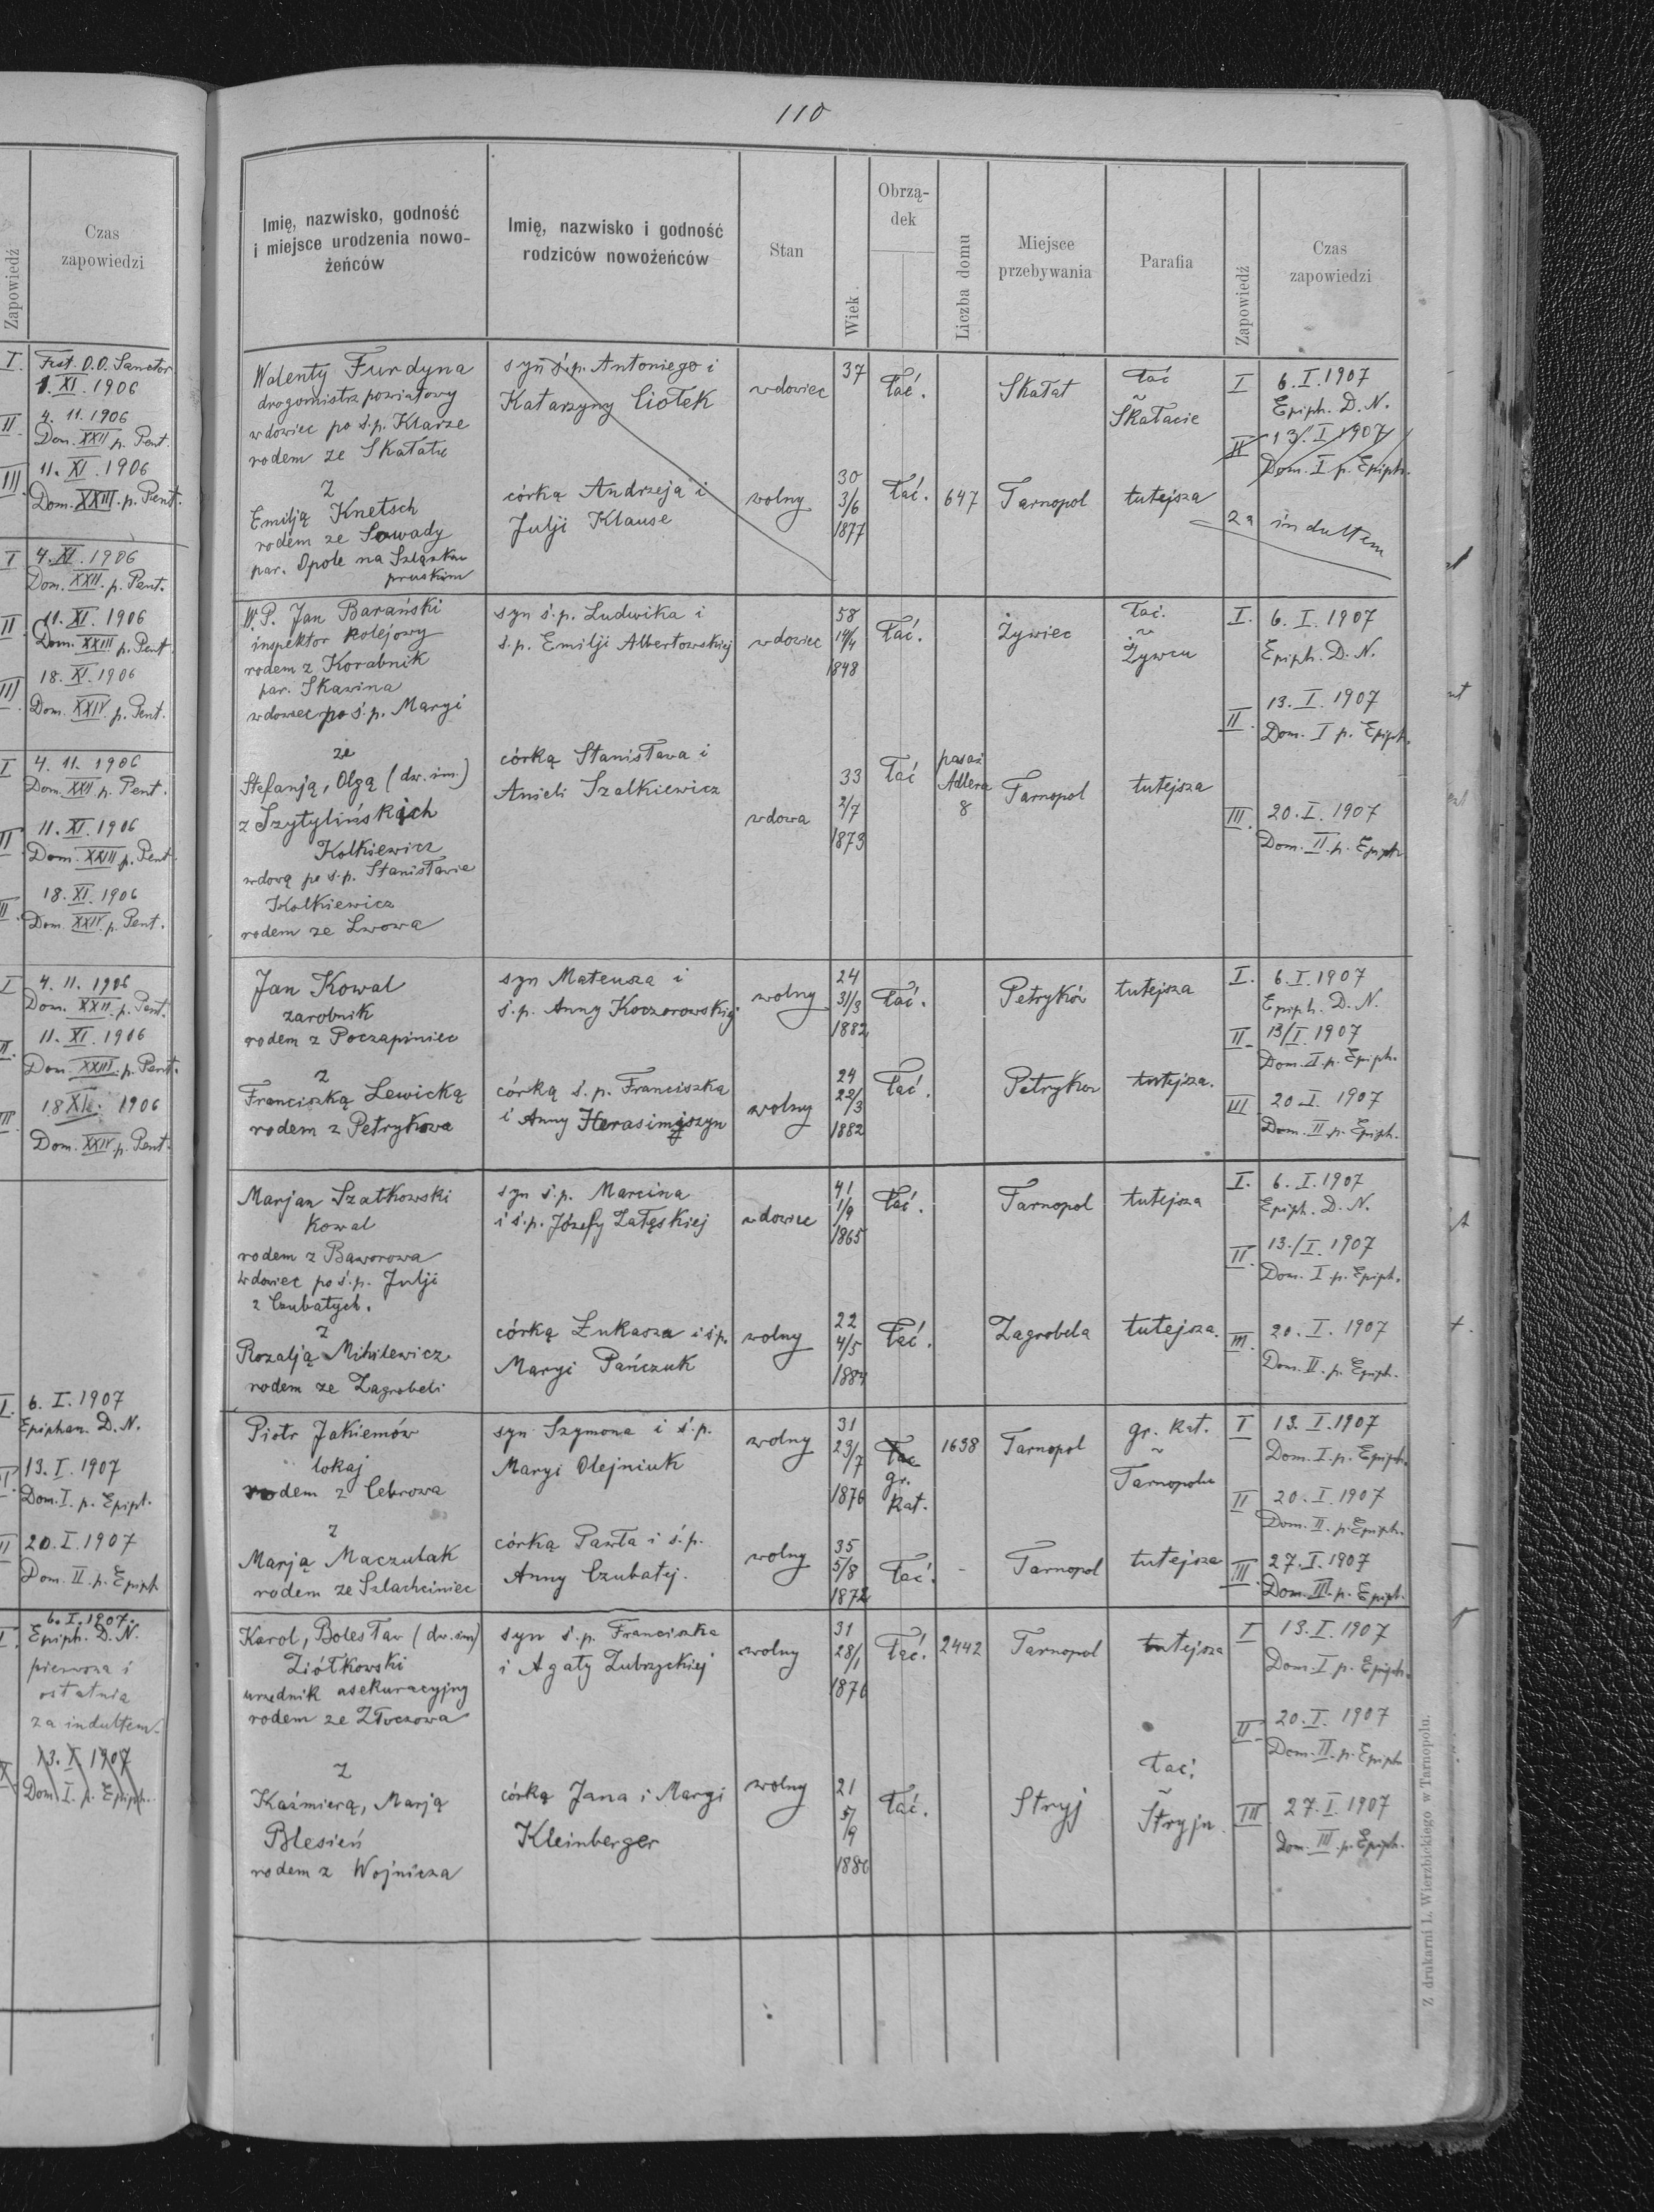 Zapowiedź
Czas
zapowiedzi
I. Fest. O.O. Sanctor
1. XI. 1906
II. 4. 11. 1906
Dom. XXII p. Pent.
III. 11. XI. 1906
Dom. XXIII. p. Pent.
I 4. XI. 1906
Dom. XXII. p. Pent.
II 11. XI. 1906
Dom. XXIII p. Pent.
III 18. XI. 1906
Dom. XXIV. p. Pent.
I 4. 11. 1906
Dom. XXII. p. Pent.
II 11. XI. 1906
Dom. XXIII p. Pent.
18. XI. 1906
Dom. XXIV. p. Pent.
I 4. 11. 1906
Dom. XXII. p. Pent.
II. 11. XI. 1906
Dom. XXIII. p. Pent.
III. 18 XI. 1906
Dom. XXIV. p. Pent.
I. 6. I. 1907
Epiphan. D. N.
13. I. 1907
Dom. I. p. Epiph.
20. I. 1907
Dom. II. p. Epiph
6. I. 1907.
I. Epiph. D. N.
pierwsza i
ostatnia
za indultem.
13. I 1907
Dom. I. p. Epiph.
110
Imię, nazwisko, godność
i miejsce urodzenia nowo-
żeńców
Imię, nazwisko i godność
rodziców nowożeńców
Stan
Wiek
Obrzą-
dek
Liczba domu
Miejsce
przebywania
Parafia
Zapowiedź
Czas
zapowiedzi
Walenty Furdyna
drogomistrz powiatowy
wdowiec po ś.p. Klarze
rodem ze Skałatu
z
Emilją Knetsch
rodem ze Sowady
par. Opole na Szląsku
pruskim
syn ś.p. Antoniego i
Katarzyny Ciołek
córką Andrzeja i
Julji Klause
wdowiec
wolny
37
30
3/6
1877
łać.
łać.
647
Skałat
Tarnopol
łać
w
Skałacie
tutejsza
I 6. I. 1907
Epiph. D. N.
II 13. I 1907
Dom. I p. Epiph.
za indultem
W. P. Jan Barański
inspektor kolejowy
rodem z Korabnik
par. Skawina
wdowiec po ś.p. Maryi
ze
Stefanją, Olgą (dw. im.)
z Szytylińskich
Kolkiewicz
wdową po ś.p. Stanisławie
Kolkiewicz
rodem ze Lwowa
syn ś.p. Ludwika i
ś.p. Emilji Albertowskiej
córką Stanisława i
Anieli Szalkiewicz
wdowiec
wdowa
58
14/4
1848
33
2/7
1873
łać.
łać
pasaż
Adlera
8
Żywiec
Tarnopol
łać.
w
Żywcu
tutejsza
I. 6. I. 1907
Epiph. D. N.
II. 13. I. 1907
Dom. I p. Epiph.
III. 20. I. 1907
Dom. II. p. Epiph
Jan Kowal
zarobnik
rodem z Poczapiniec
z
Franciszką Lewicką
rodem z Petrykowa
syn Mateusza i
ś.p. Anny Koczorowskiej
córką ś.p. Franciszka
i Anny Herasimyszyn
wolny
wolny
24
31/3
1882
24
22/3
1882
łać.
łać.
Petryków
Petryków
tutejsza
tutejsza.
I. 6. I. 1907
Epiph. D. N.
II. 13/I. 1907
Dom. II p. Epiph.
III 20. I. 1907
Dom. II. p. Epiph.
Marjan Szatkowski
kowal
rodem z Baworowa
wdowiec po ś.p. Julji
z Czubatych.
z
Rozalją Mihilewicz
rodem ze Zagrobeli
syn ś.p. Marcina
i ś.p. Józefy Załęskiej
córką Łukasza i ś.p.
Maryi Pańczuk
wdowiec
wolny
41
1/9
1865
22
4/5
1884
łać.
łać.
Tarnopol
Zagrobela
tutejsza
tutejsza.
I. 6. I. 1907
Epiph. D. N.
II. 13./I. 1907
Dom. I p. Epiph.
III. 20. I. 1907
Dom. II. p. Epiph.
Piotr Jakiemów
lokaj
rodem z Cebrowa
z
Marją Maczulak
rodem ze Szlachciniec
syn Szymona i ś.p.
Maryi Olejniuk
córką Pawła i ś.p.
Anny Czubatej.
wolny
wolny
31
23/7
1876
35
5/8
1872
łać
gr.
kat.
łać.
1638
Tarnopol
Tarnopol
gr. kat.
w
Tarnopolu
tutejsza
I 13. I. 1907
Dom. I. p. Epiph.
II 20. I. 1907
Dom. II. p. Epiph.
III. 27. I. 1907
Dom. III. p. Epiph.
Karol, Bolesław (dw. im)
Ziółkowski
urzędnik asekuracyjny
rodem ze Złoczowa
z
Kaźmierą, Marją
Blesień
rodem z Wojnicza
syn ś.p. Franciszka
i Agaty Zubrzyckiej
córką Jana i Maryi
Kleinberger
wolny
wolny
31
28/1
1876
21
5/9
1886
łać.
łać.
2442
Tarnopol
Stryj
tutejsza
łać.
w
Stryju.
I 13. I. 1907
Dom. I p. Epiph.
II 20. I. 1907
Dom. II. p. Epiph
III. 27. I. 1907
Dom. III. p. Epiph.
Z drukarni L. Wierzbickiego w Tarnopolu.